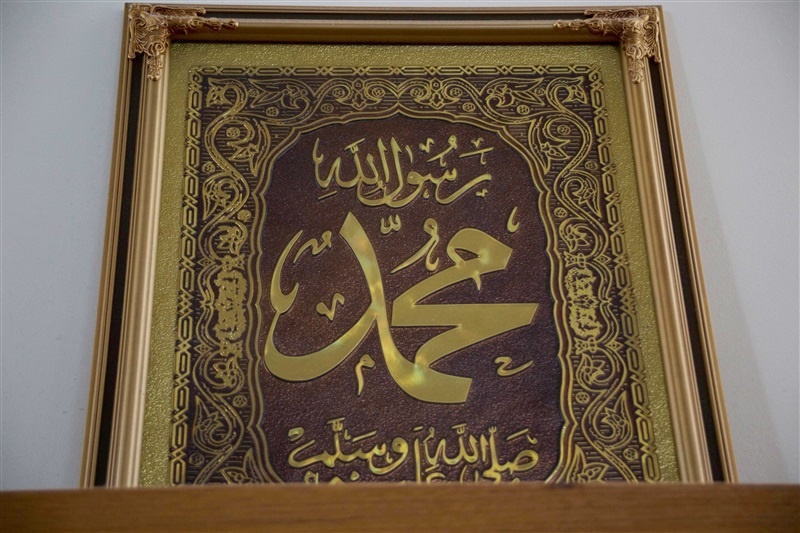 رَسُولُ اللَّه
مُحَمَّدٌ
صَلَّى اللَّهُ عَلَيْهِ وَسَلَّمَ